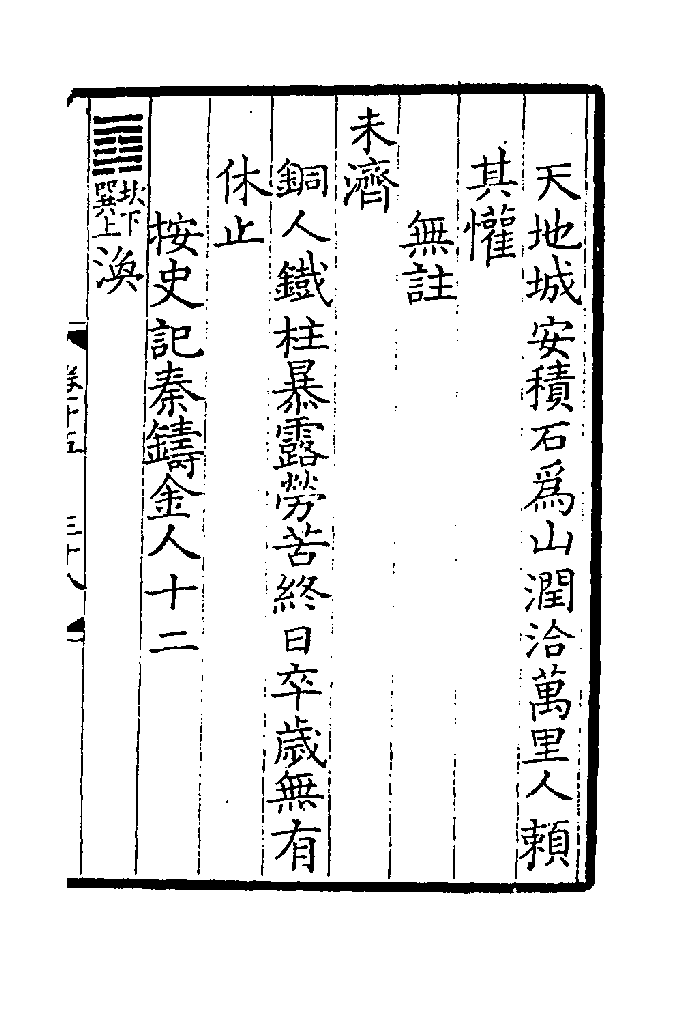 天地城安積石為山潤洽萬里人頼
其懽
無註
未濟
銅人鐵柱暴露勞苦終日卒歳無有
休止
按史記秦鑄金人十二
坎下
巽上
渙
卷十五
三十八